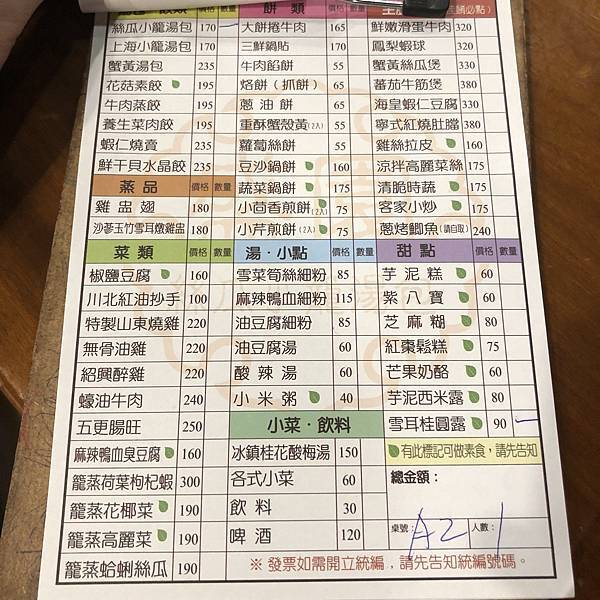 餅類 價格 數量
絲瓜小龍湯包 170
上海小龍湯包 170
蟹黃湯包 235
花菇素餃 195
牛肉蒸餃 195
養生菜肉餃 195
蝦仁燒賣 235
鮮干貝水晶餃 235
蒸品 價格 數量
雞盅翅 180
沙蔘玉竹雪耳燉雞盅 180
菜類 價格 數量
椒鹽豆腐 160
川北紅油抄手 100
特製山東燒雞 220
無骨油雞 220
紹興醉雞 220
蠔油牛肉 240
五更腸旺 250
麻辣鴨血臭豆腐 160
籠蒸荷葉枸杞蝦 300
籠蒸花椰菜 190
籠蒸高麗菜 190
籠蒸蛤蜊絲瓜 190
大餅捲牛肉 165
三鮮鍋貼 170
牛肉餡餅 55
烙餅(抓餅) 65
蔥油餅 65
重酥蟹殼黃(2入) 55
蘿蔔絲餅 55
豆沙鍋餅 160
蔬菜鍋餅 175
小茴香煎餅(2入) 75
小芹煎餅(2入) 75
湯·小點 價格 數量
雪菜筍絲細粉 85
麻辣鴨血細粉 115
油豆腐細粉 85
油豆腐湯 60
酸辣湯 60
小米粥 40
小菜·飲料
冰鎮桂花酸梅湯 150
各式小菜 60
飲料 30
啤酒 120
鮮嫩滑蛋牛肉 320
鳳梨蝦球 320
蟹黃絲瓜煲 330
蕃茄牛筋煲 380
海皇蝦仁豆腐 330
寧式紅燒肚膛 380
雞絲拉皮 160
涼拌高麗菜絲 175
清脆時蔬 175
客家小炒 175
蔥烤鯽魚(請自取) 240
甜點 價格 數量
芋泥糕 60
紫八寶 60
芝麻糊 80
紅棗鬆糕 75
芒果奶酪 60
芋泥西米露 80
雪耳桂圓露 90
有此標記可做素食,請先告知
總金額:
桌號: A2 人數: 1
※ 發票如需開立統編,請先告知統編號碼。